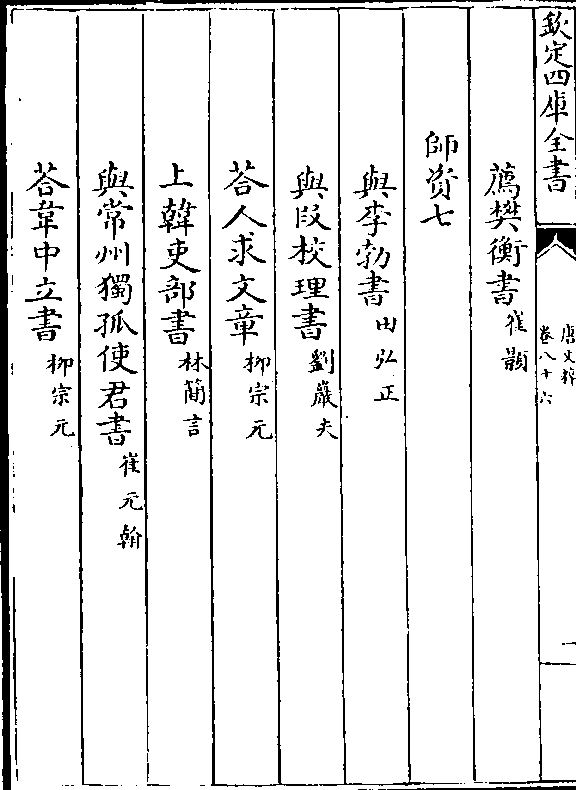 欽定四庫全書
唐文粹
卷八十六
一
薦樊衡書崔顥
師資七
與李勃書田弘正
與段校理書劉巖夫
荅人求文章柳宗元
上韓吏部書林簡言
與常州獨孤使君書崔元翰
荅韋中立書柳宗元